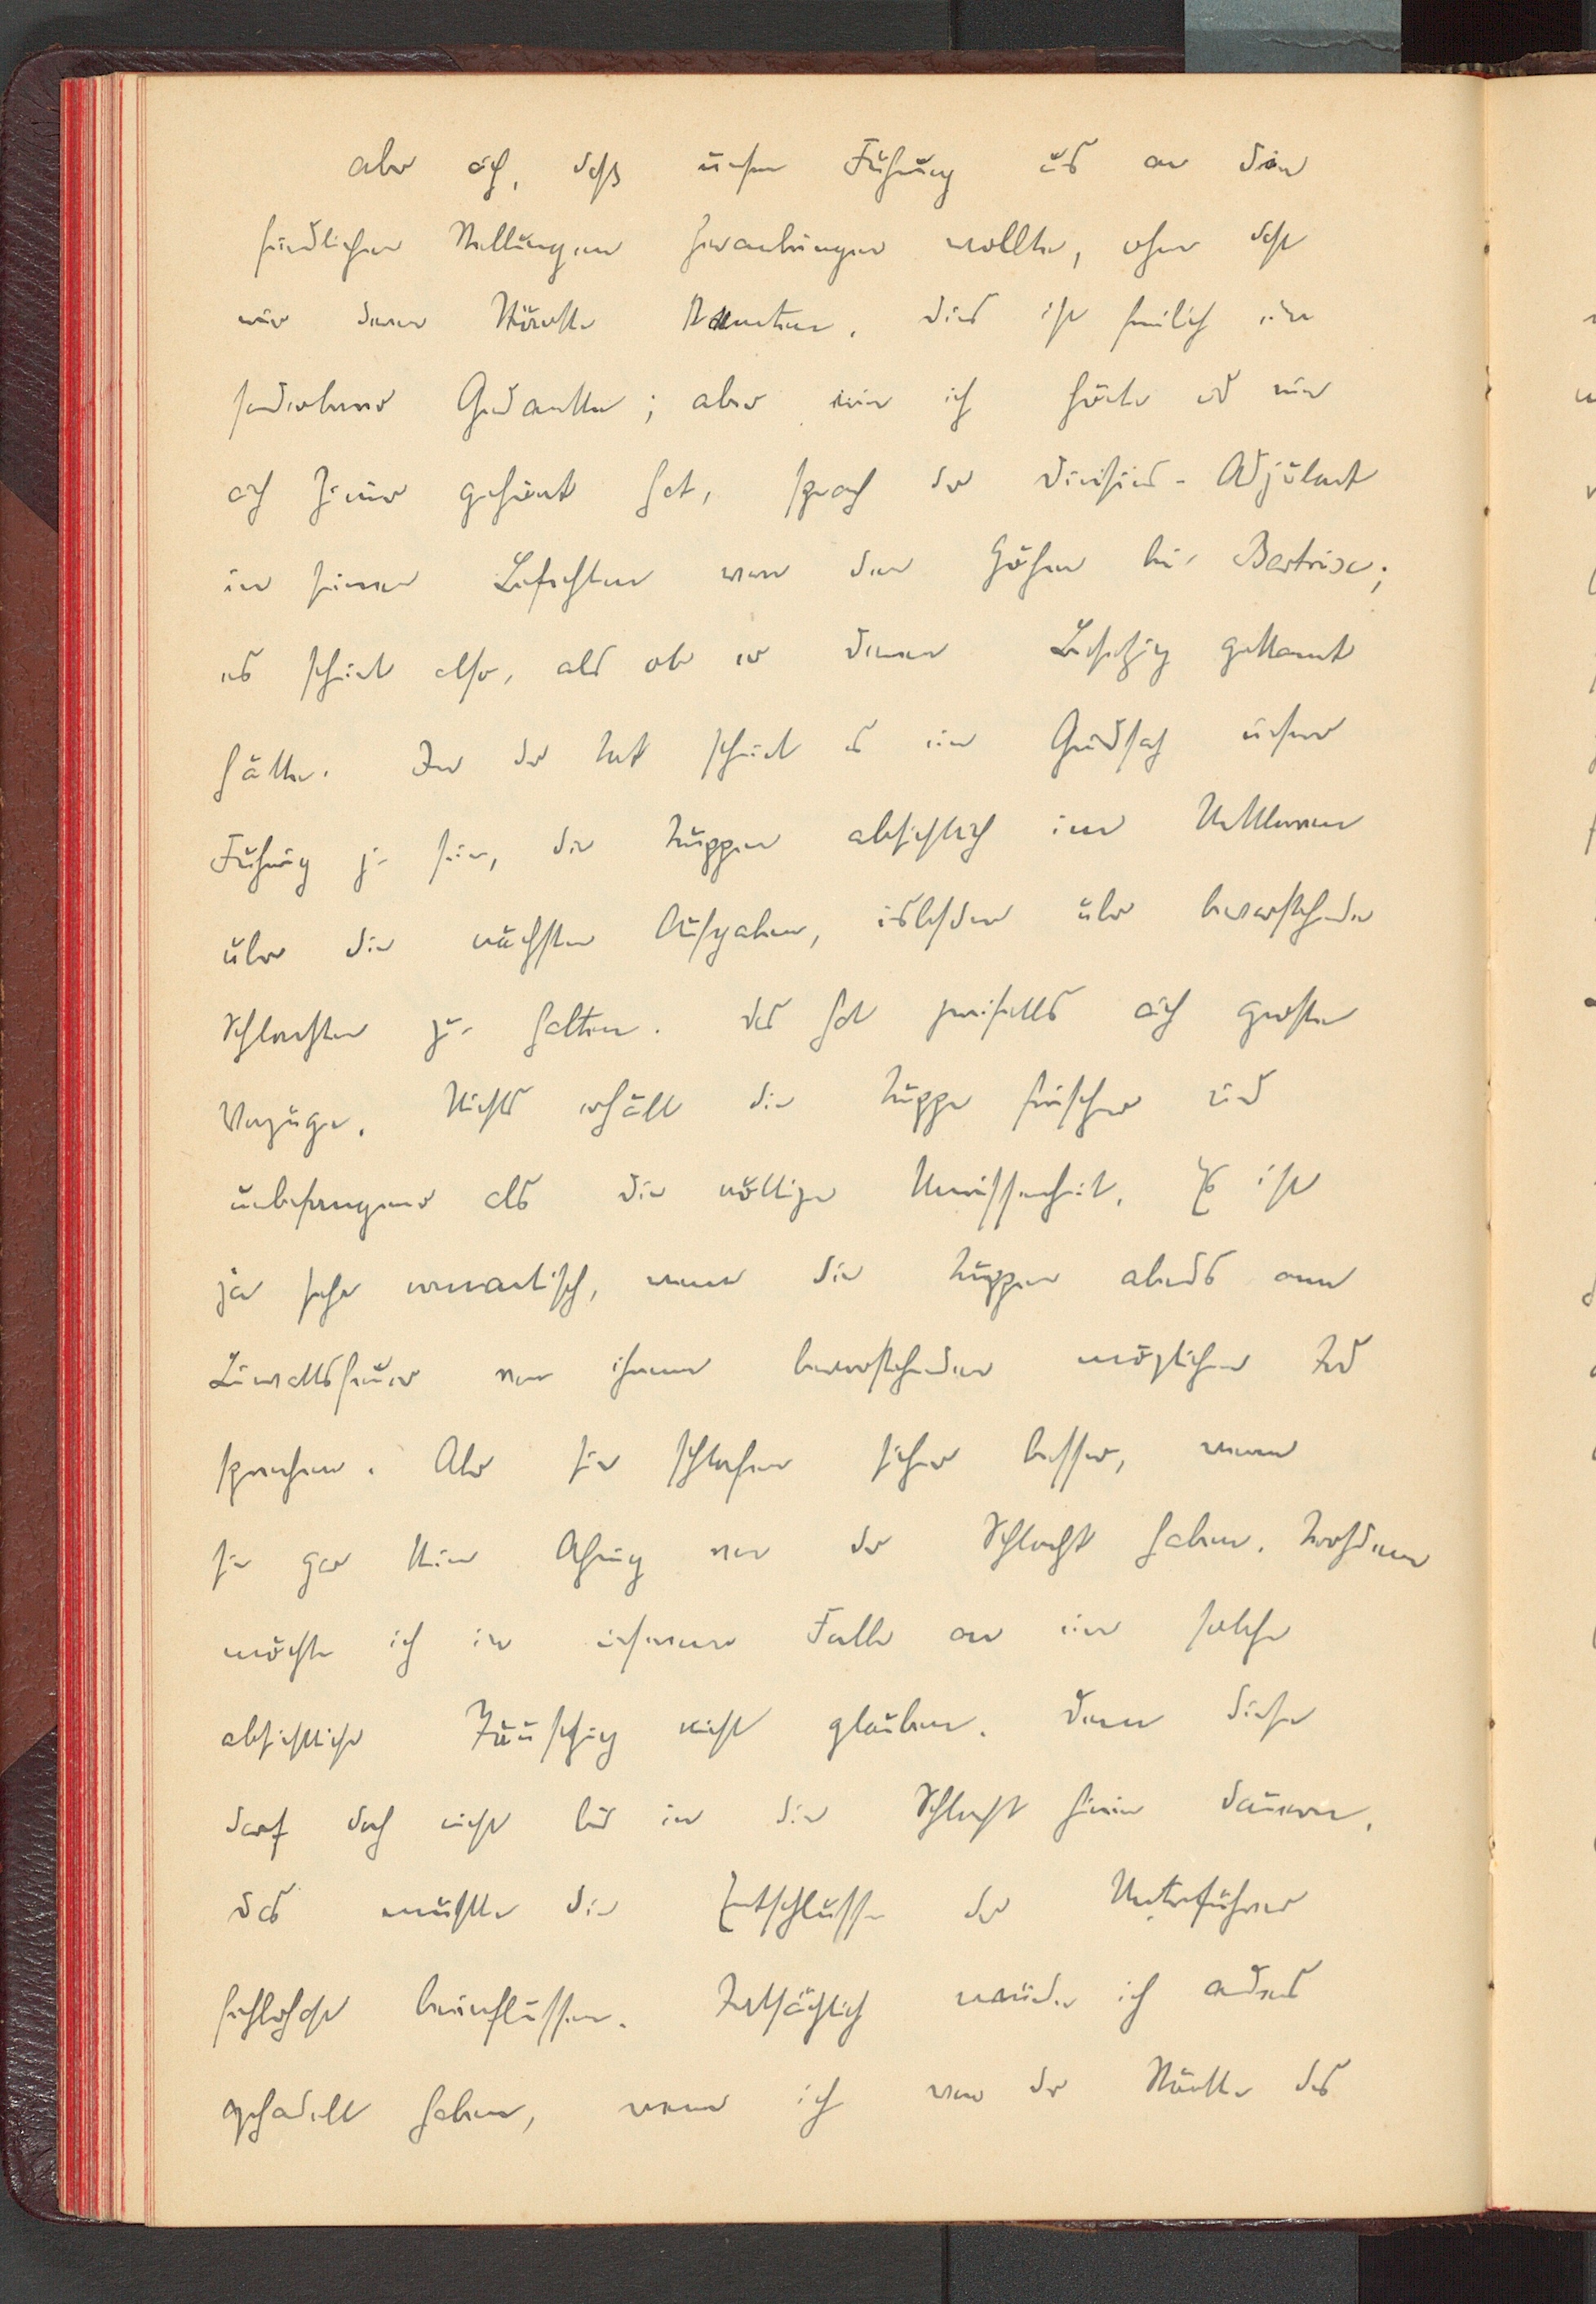 aber auch, daß unsere Führung uns an die
feindlichen Stellungen heranbringen wollte, ohne daß
wir deren Stärke kannten. Dies ist freilich ein
sonderbarer Gedanke; aber wie ich hörte und wie
auch geäußert hat, sprach der Divisions-Adjutant
in seinen Befehlen von den Höhen bei Bertrix;
es scheint also, als ob er deren Besetzung gekannt
hätte. In der Tat scheint es ein Grundsatz unserer
Führung zu sein, die Truppen absichtlich im Unklaren
über die nächsten Aufgaben, insbesondere über bevorstehende
Schlachten zu halten. Das hat zweifellos auch große
Vorzüge. Nichts erhält die Truppe frischer und
unbefangener als die völlige Unwissenheit. Es ist
ja sehr romantisch, wenn die Truppen abends am
Biwaksfeuer von ihrem bevorstehenden möglichen Tod
sprechen. Aber sie schlafen sicher besser, wenn
sie gar keine Ahnung von der Schlacht haben. Trotzdem
möchte ich in unserem Falle an eine solche
absichtliche Täuschung nicht glauben. Denn diese
darf doch nicht bis in die Schlacht hinein dauern.
Das müßte die Entschlüsse der Unterführer
fehlerhaft beeinflussen. Tatsächlich würde ich anders
gehandelt haben, wenn ich von der Stärke des